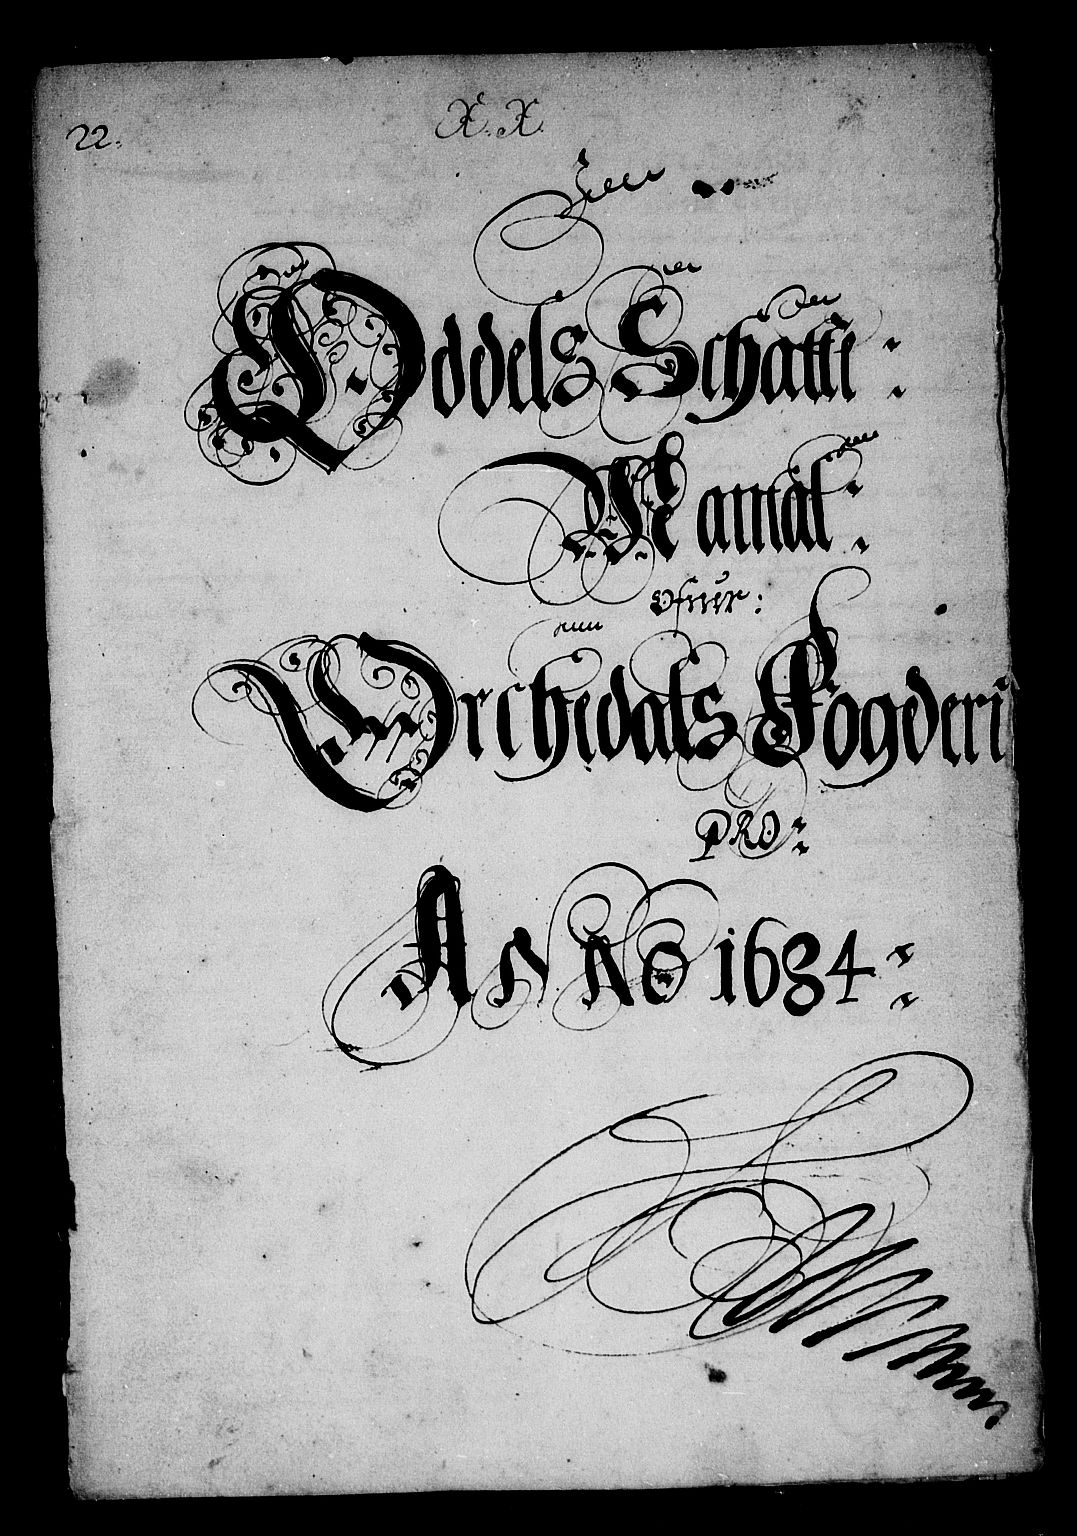 22.
X. X.
Oddels Schatte :
Mamal :
ofuer :
Orchedals Fogderi
PRO :
ANNO 1684 :